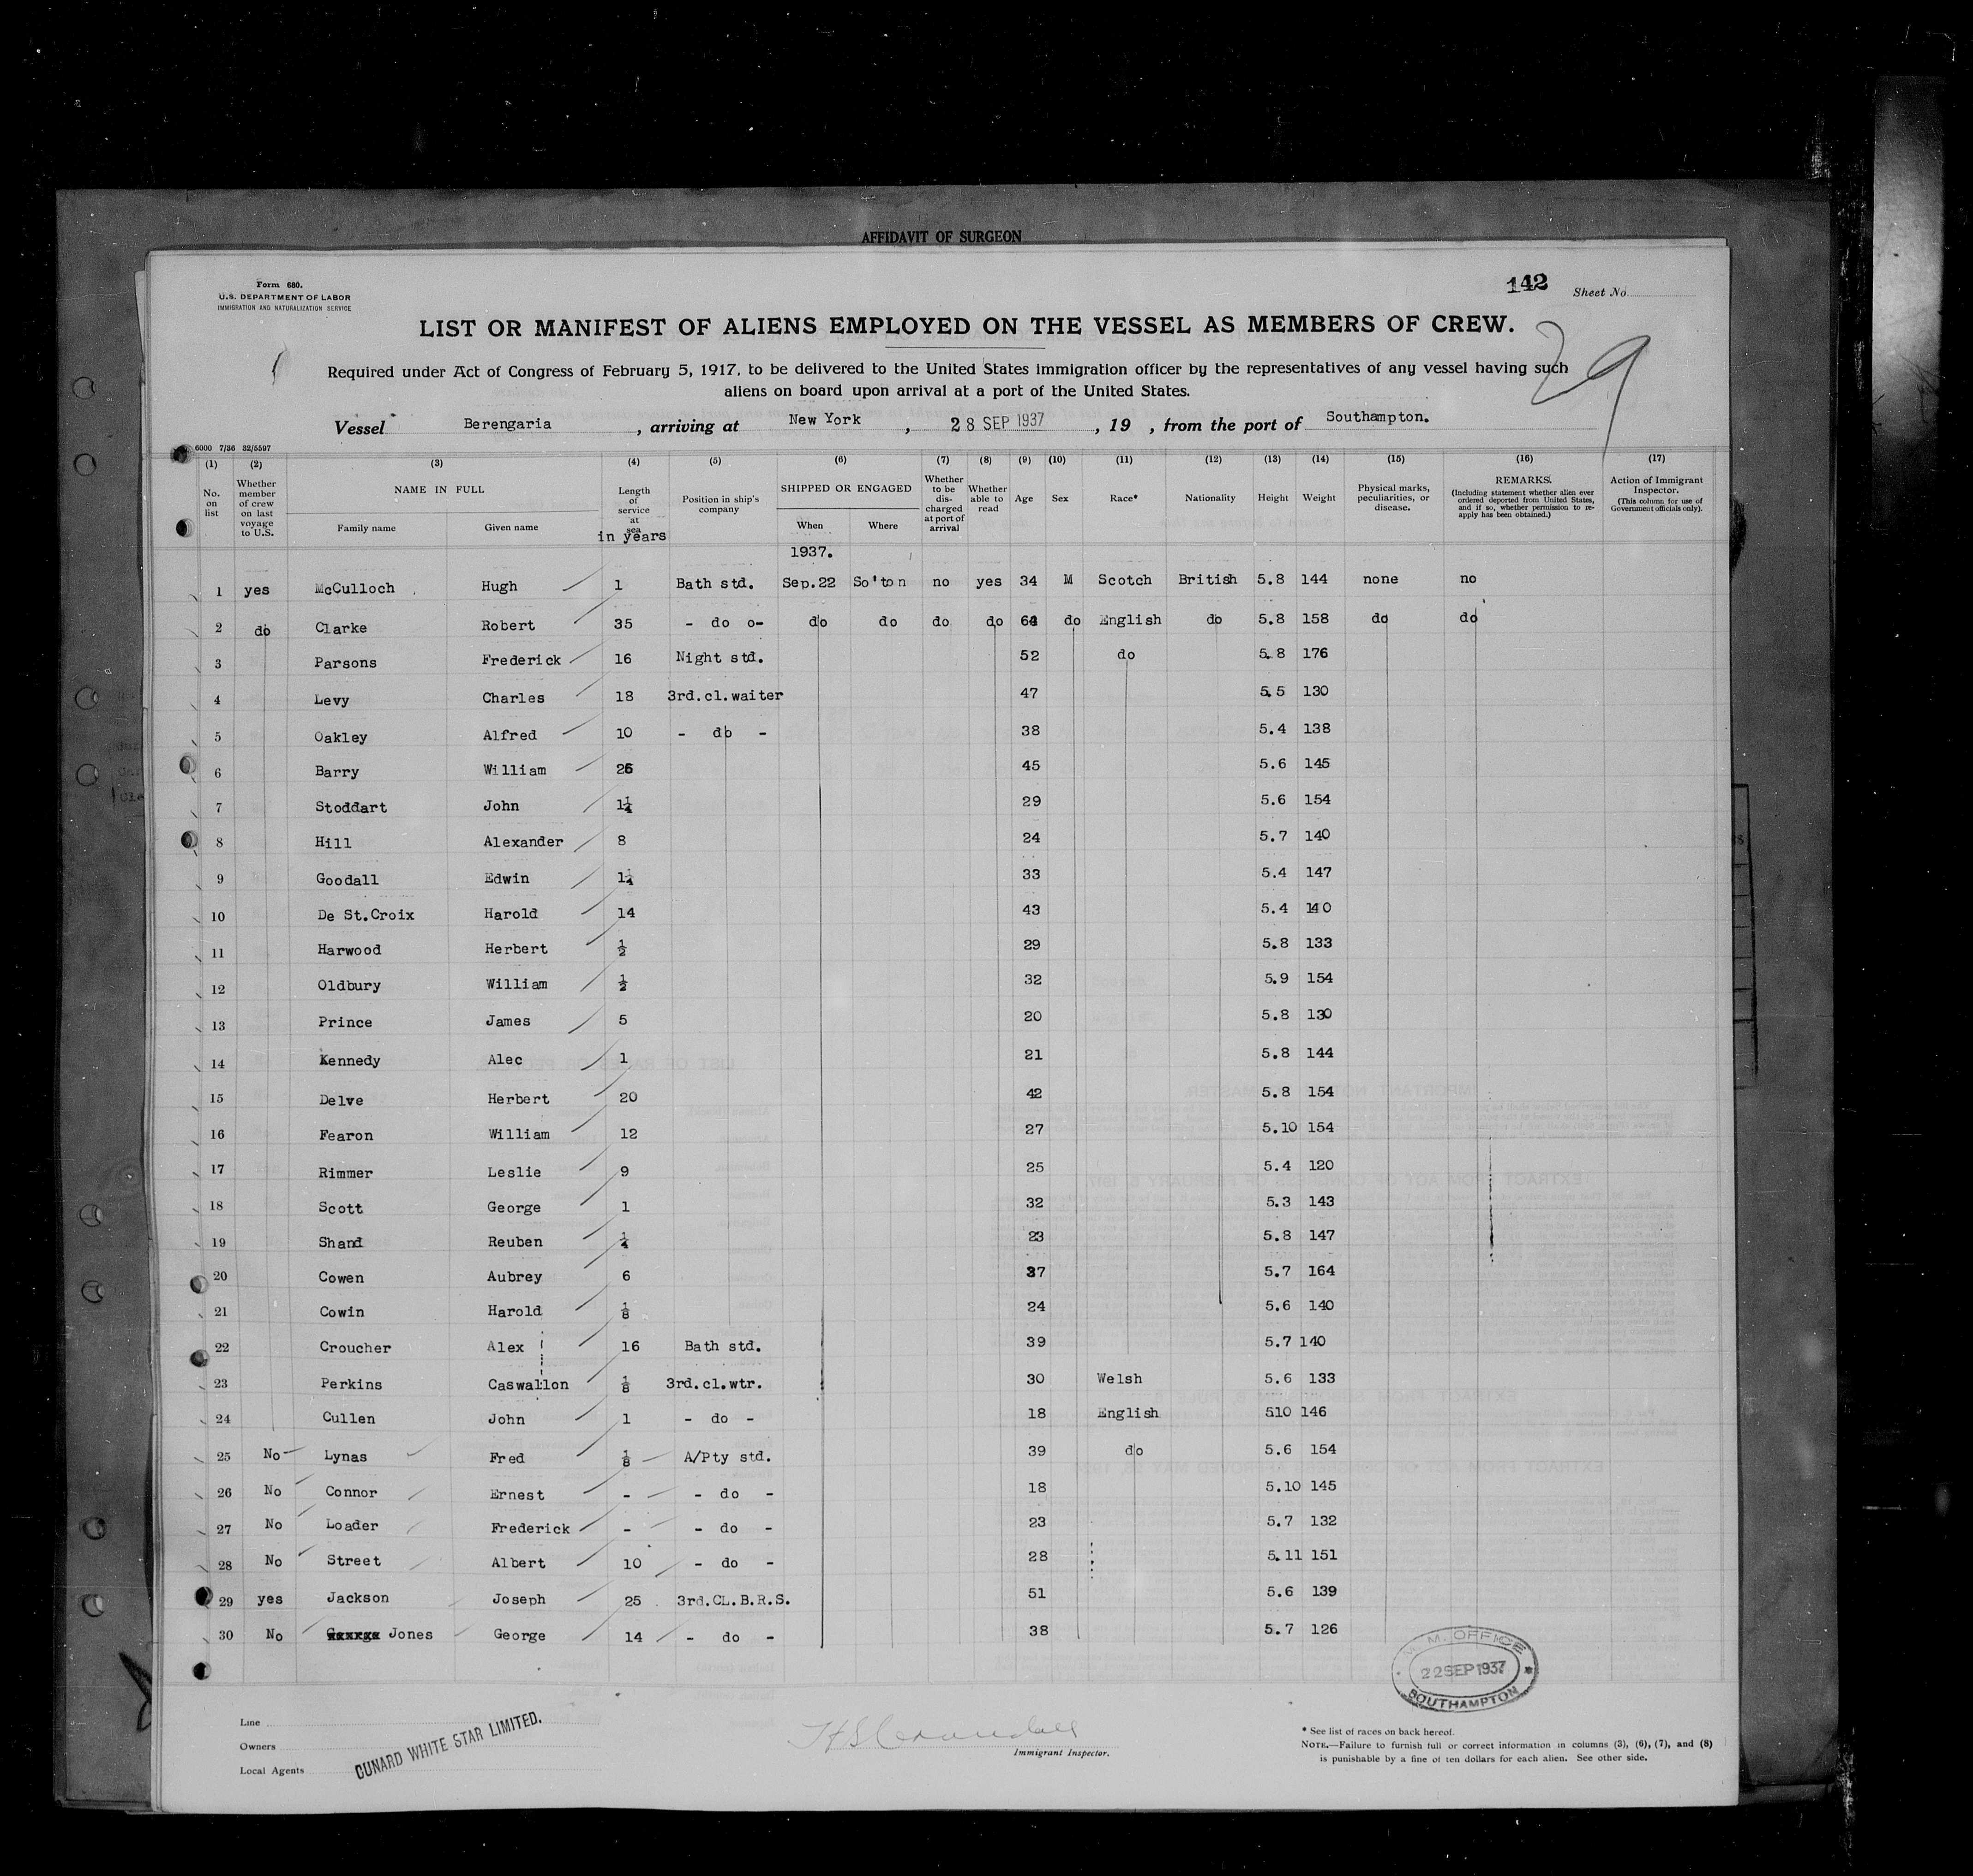 AFFIDAVIT OF SURGEON
Form 680.
U.S. DEPARTMENT OF LABOR
IMMIGRATION AND NATURALIZATION SERVICE
142 Sheet No.
LIST OR MANIFEST OF ALIENS EMPLOYED ON THE VESSEL AS MEMBERS OF CREW.
29
Required under Act of Congress of February 5, 1917, to be delivered to the United States immigration officer by the representatives of any vessel having such
aliens on board upon arrival at a port of the United States.
Vessel Berengaria, arriving at New York, 28 SEP 1937, 19 , from the port of Southampton.
6000 7/36 32/5597
(1) (2) (3) (4) (5) (6) (7) (8) (9) (10) (11) (12) (13) (14) (15) (16) (17)
No. on list
Whether member of crew on last voyage to U.S.
NAME IN FULL
Family name Given name
Length of service at sea
in years
Position in ship's company
SHIPPED OR ENGAGED
When Where
Whether to be discharged at port of arrival
Whether able to read
Age Sex Race* Nationality Height Weight
Physical marks, peculiarities, or disease.
REMARKS.
(Including statement whether alien ever ordered deported from United States, and if so, whether permission to reapply has been obtained.)
Action of Immigrant Inspector.
(This column for use of Government officials only).
1937.
1 yes McCulloch Hugh 1 Bath std. Sep.22 So'ton no yes 34 M Scotch British 5.8 144 none no
2 do Clarke Robert 35 - do o- do do do do 64 do English do 5.8 158 do do
3 Parsons Frederick 16 Night std. 52 do 5.8 176
4 Levy Charles 18 3rd.cl.waiter 47 5.5 130
5 Oakley Alfred 10 - do - 38 5.4 138
6 Barry William 26 45 5.6 145
7 Stoddart John 1¼ 29 5.6 154
8 Hill Alexander 8 24 5.7 140
9 Goodall Edwin 1¼ 33 5.4 147
10 De St.Croix Harold 14 43 5.4 140
11 Harwood Herbert ½ 29 5.8 133
12 Oldbury William ½ 32 5.9 154
13 Prince James 5 20 5.8 130
14 Kennedy Alec 1 21 5.8 144
15 Delve Herbert 20 42 5.8 154
16 Fearon William 12 27 5.10 154
17 Rimmer Leslie 9 25 5.4 120
18 Scott George 1 32 5.3 143
19 Shand Reuben ¼ 23 5.8 147
20 Cowen Aubrey 6 37 5.7 164
21 Cowin Harold ⅛ 24 5.6 140
22 Croucher Alex 16 Bath std. 39 5.7 140
23 Perkins Caswallon ⅛ 3rd.cl.wtr. 30 Welsh 5.6 133
24 Cullen John 1 - do - 18 English 510 146
25 No Lynas Fred ⅛ A/Pty std. 39 do 5.6 154
26 No Connor Ernest - - do - 18 5.10 145
27 No Loader Frederick - - do - 23 5.7 132
28 No Street Albert 10 - do - 28 5.11 151
29 yes Jackson Joseph 25 3rd.CL.B.R.S. 51 5.6 139
30 No Jones George 14 - do - 38 5.7 126
M. M. OFFICE
22SEP1937
SOUTHAMPTON
Line
Owners
Local Agents
CUNARD WHITE STAR LIMITED.
Immigrant Inspector.
* See list of races on back hereof.
NOTE.—Failure to furnish full or correct information in columns (3), (6), (7), and (8)
is punishable by a fine of ten dollars for each alien. See other side.